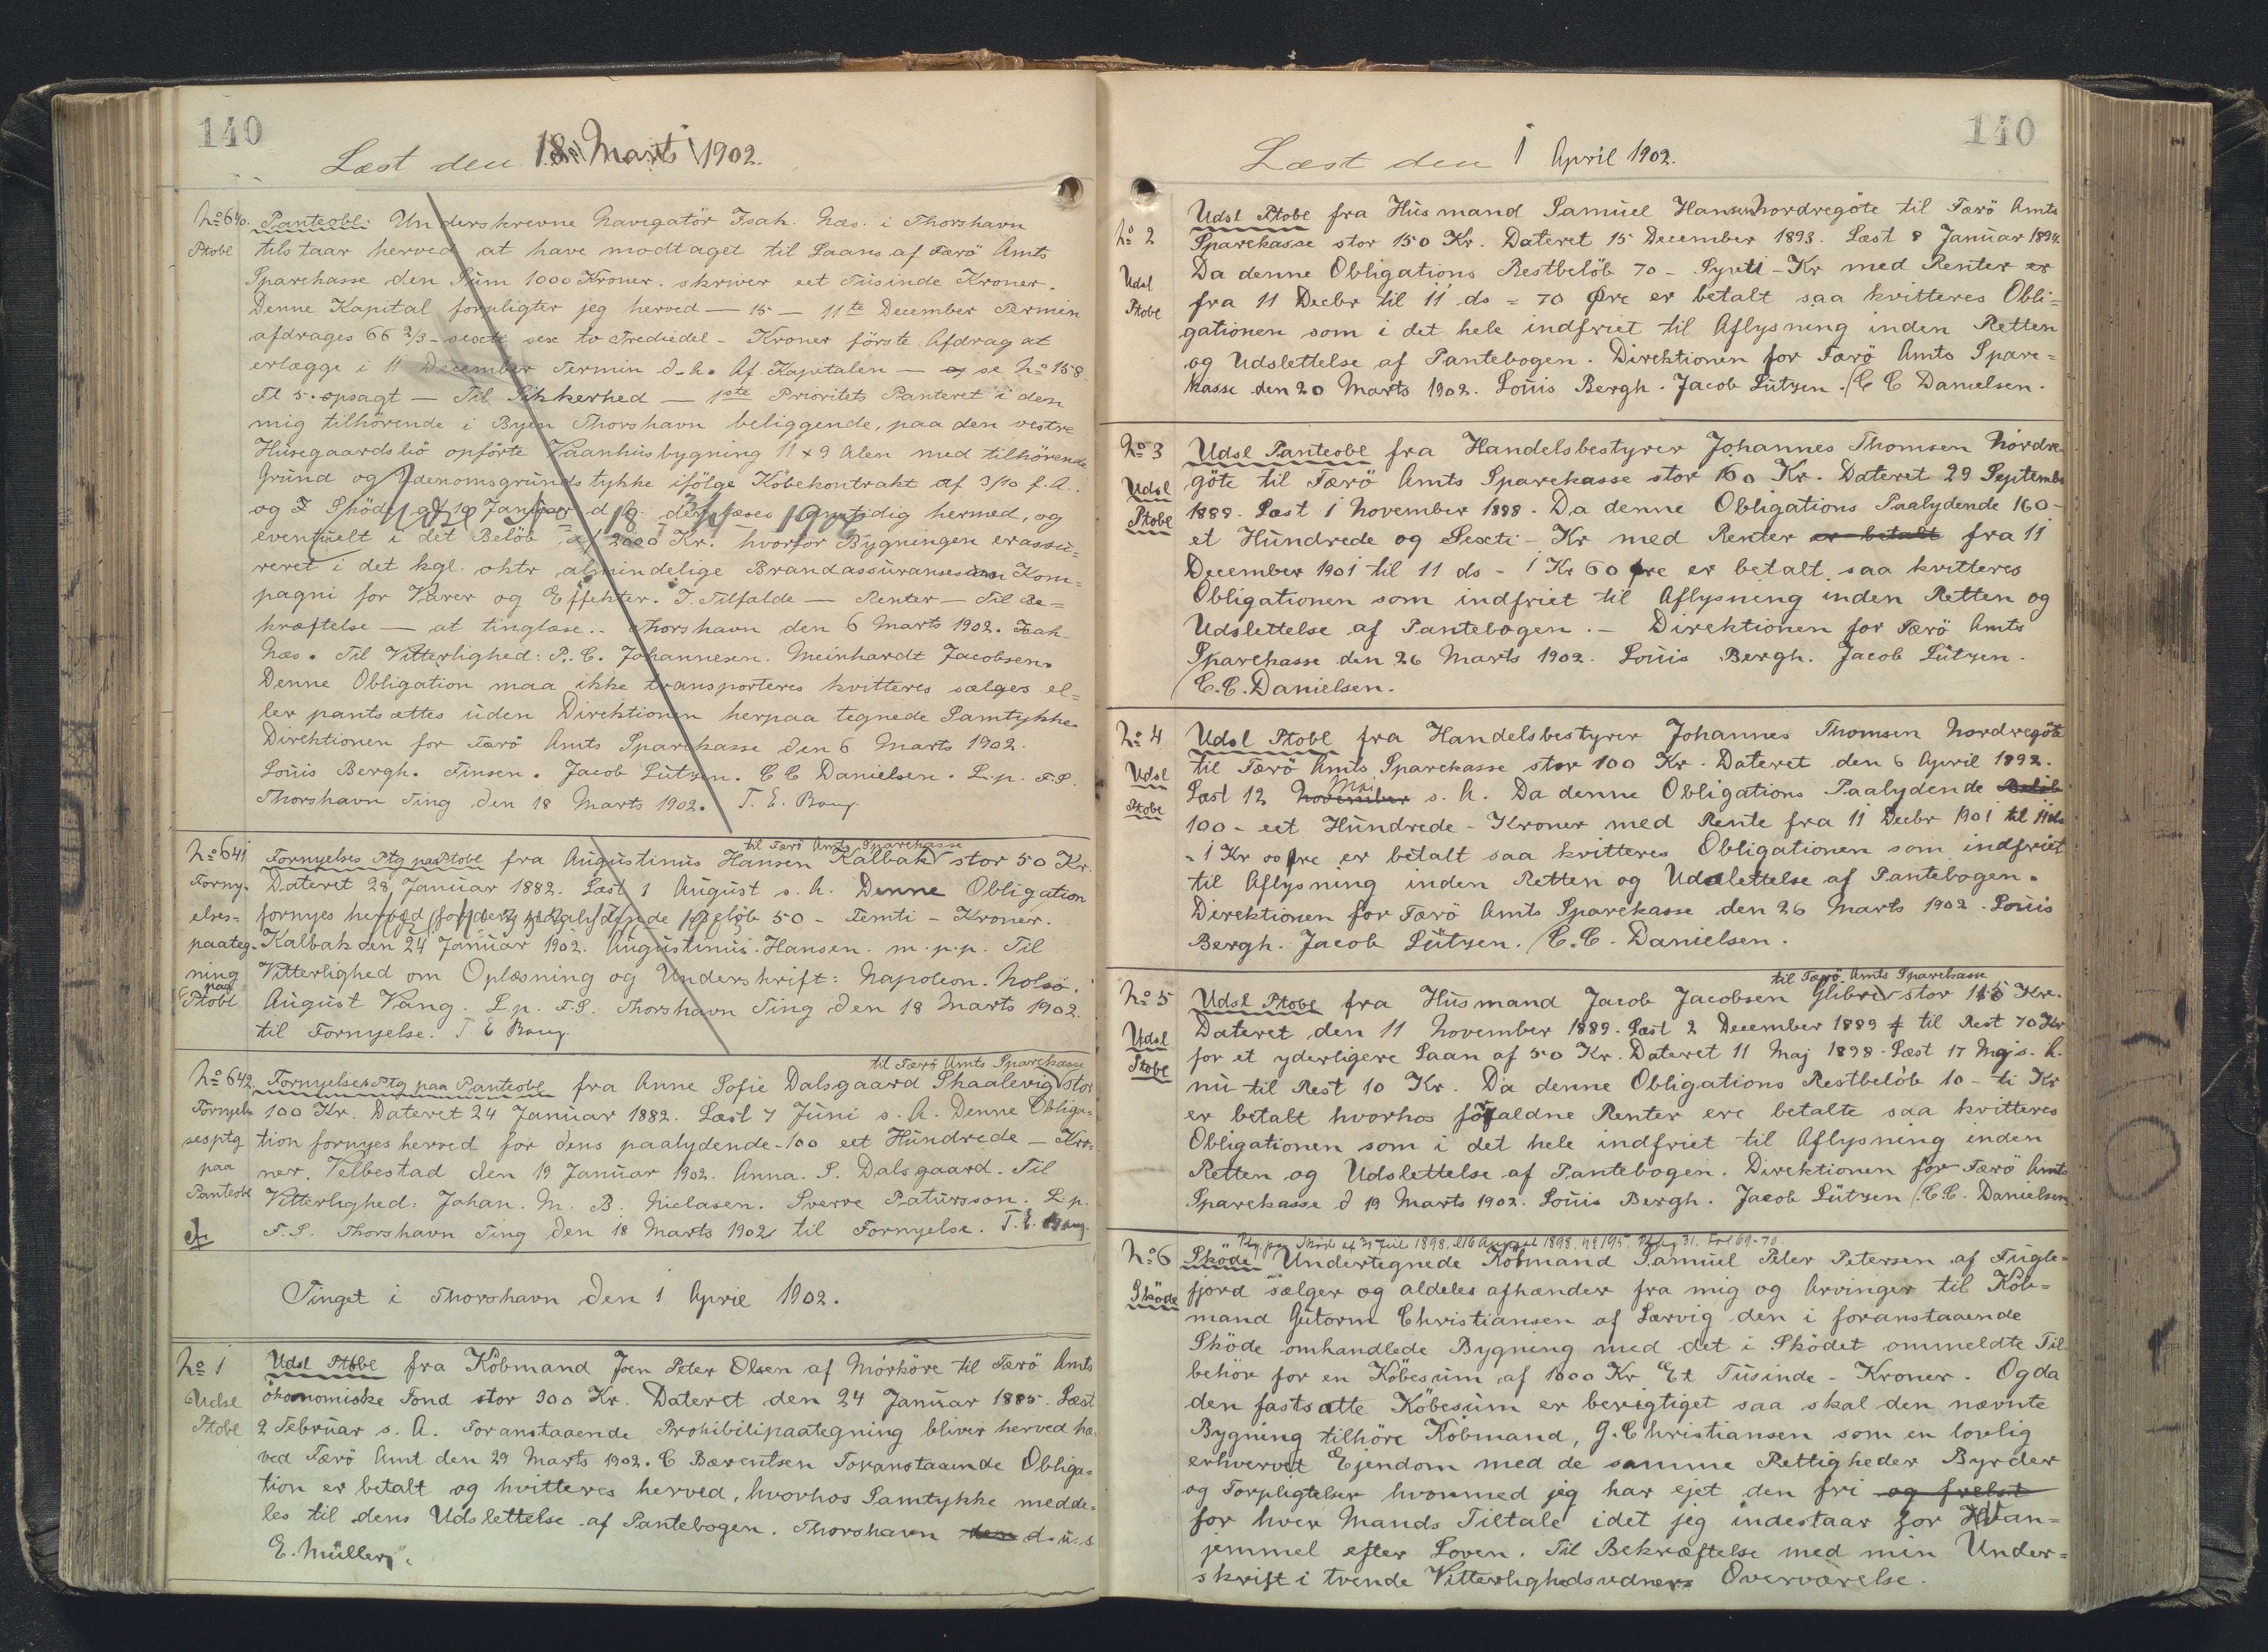 140
Læst den 18 Marts 1902.
No 640. Panteobl: Underskrevne Navigatör Isak. Næs. i Thorshavn
Ptobl tilstaar herved at have modtaget til Laans af Færö Amts
Sparekasse den Sum 1000 Kroner. skriver eet Tusinde Kroner.
Denne Kapital forpligter jeg herved — 15 — 11te December Termin
afdrages 66 2/3 - sexti sex to Trediedel - Kroner förste Afdrag at
erlægge i 11 December Termin d.A. Af Kapitalen — se No 158
Fl 5. opsagt — Til Sikkerhed — 1ste Prioritets Panteret i den
mig tilhörende i Byen Thorshavn beliggende, paa den vestre
Husegaardsbö opförte Vaanhusbygning 11 x 9 Alen med tilhörende
Grund og Udenomsgrundstykke ifölge Köbekontrakt af 3/10 f.A.
og Sköde af 10 Januar d.A. der læses samtidig hermed, og
eventuelt i det Belöb af 2000 Kr. hvorfor Bygningen er assu=
reret i det kgl. oktr almindelige Brandassurance Kom=
pagni for Varer og Effekter. I Tilfælde — Renter — Til Be=
kræftelse — at tinglæse.. Thorshavn den 6 Marts 1902. Isak
Næs. Til Vitterlighed: P. C. Johannesen. Meinhardt Jacobsen.
Denne Obligation maa ikke transporteres kvitteres sælges el=
ler pantsættes uden Direktionen herpaa tegnede Samtykke.
Direktionen for Færö Amts Sparekasse den 6 Marts 1902.
Louis Bergh. Finsen. Jacob Lützen. C C Danielsen. L.p. F.S.
Thorshavn Ting den 18 Marts 1902. T. E. Bang
til Færö Amts Sparekasse
No 641 Fornyelses Ptg paa Ptobl fra Augustinus Hansen Kalbak stor 50 Kr.
Forny- Dateret 28 Januar 1882. Læst 1 August s. A. Denne Obligation
elses= fornyes herved for dens paalydende Belöb 50 - Femti - Kroner.
paateg- Kalbak den 24 Januar 1902. Augustinus. Hansen. m.p.p. Til
ning paa Vitterlighed om Oplæsning og Underskrift: Napoleon. Nolsö.
Ptobl August Vang. L.p. F.S. Thorshavn Ting den 18 Marts 1902.
til Fornyelse. T E Bang.
til Færö Amts Sparekasse
No 642. Fornyelses Ptg paa Panteobl fra Anne Sofie Dalsgaard Skaalevig stor
Fornyel= 100 Kr. Dateret 24 Januar 1882. Læst 7 Juni s. A. Denne Obliga=
sesptg tion fornyes herved for dens paalydende - 100 eet Hundrede — Kro=
paa ner. Velbestad den 19 Januar 1902. Anna. S. Dalsgaard. Til
Panteobl Vitterlighed: Johan. M. B. Niclasen. Sverre Patursson. L.p.
F.S. Thorshavn Ting den 18 Marts 1902 til Fornyelse. T. E. Bang.
Tinget i Thorshavn den 1 April 1902.
No 1 Udsl Ptobl fra Köbmand Joen Peter Olsen af Mörköre til Færö Amts
Udsl ökonomiske Fond stor 300 Kr. Dateret den 24 Januar 1885. Læst
Ptobl 2 Februar s. A. Foranstaaende Prohibitipaategning bliver herved hæ=
vet Færö Amt den 29 Marts 1902. C Bærentsen Foranstaaende Obliga=
tion er betalt og kvitteres herved, hvorhos Samtykke medde=
les til dens Udslettelse af Pantebogen. Thorshavn den d.u.s.
E. Müller.
140
Læst den 1 April 1902.
No 2 Udsl Ptobl fra Husmand Samuel Hansen Nordregöte til Færö Amts
Sparekasse stor 150 Kr. Dateret 15 December 1893. Læst 8 Januar 1894.
Udsl Da denne Obligations Restbelöb 70 - Syvti - Kr med Renter er
Ptobl fra 11 Decbr til 11 ds = 70 Øre er betalt saa kvitteres Obli=
gationen som i det hele indfriet til Aflysning inden Retten
og Udslettelse af Pantebogen. Direktionen for Færö Amts Spare=
kasse den 20 Marts 1902. Louis Bergh. Jacob Lützen. / C C Danielsen.
No 3 Udsl Panteobl fra Handelsbestyrer Johannes Thomsen Nordre
Udsl göte til Færö Amts Sparekasse stor 160 Kr. Dateret 29 Septembr
Ptobl 1888. Læst 1 November 1888. Da denne Obligations Paalydende 160 -
et Hundrede og Sexti - Kr med Renter er betalt fra 11
December 1901 til 11 ds - 1 Kr 60 Øre er betalt saa kvitteres
Obligationen som indfriet til Aflysning inden Retten og
Udslettelse af Pantebogen. — Direktionen for Færö Amts
Sparekasse den 26 Marts 1902. Louis Bergh. Jacob Lützen.
/ C. C. Danielsen.
No 4 Udsl Ptobl fra Handelsbestyrer Johannes Thomsen Nordregöte
Udsl til Færö Amts Sparekasse stor 100 Kr. Dateret den 6 April 1892.
Ptobl Læst 12 November Maj s. A. Da denne Obligations Paalydende Belöb
100 - eet Hundrede - Kroner med Rente fra 11 Decbr 1901 til 11 ds
= 1 Kr 00 Øre er betalt saa kvitteres Obligationen som indfriet
til Aflysning inden Retten og Udslettelse af Pantebogen.
Direktionen for Færö Amts Sparekasse den 26 Marts 1902. Louis
Bergh. Jacob Lützen. / C. C. Danielsen.
til Færö Amts Sparekasse
No 5 Udsl Ptobl fra Husmand Jacob Jacobsen Glibre stor Kr.
Udsl Dateret den 11 November 1889. Læst 2 December 1889 til Rest 70 Kr
Ptobl for et yderligere Laan af 50 Kr. Dateret 11 Maj 1898. Læst 17 Maj s. A.
nu til Rest 10 Kr. Da denne Obligations Restbelöb 10 - ti Kr
er betalt hvorhos forfaldne Renter ere betalte saa kvitteres
Obligationen som i det hele indfriet til Aflysning inden
Retten og Udslettelse af Pantebogen. Direktionen for Færö Amts
Sparekasse d 19 Marts 1902. Louis Bergh. Jacob Lützen / C.C. Danielsen.
Ptg paa Sköde af 31 Juli 1898, l 16 August 1898. No 195. Fol 69-70.
No 6 Sköde Undertegnede Köbmand Samuel Peter Petersen af Fugle=
Sköde fjord sælger og aldeles afhænder fra mig og Arvinger til Köb=
mand Gutorm Christiansen af Lervig den i foranstaaende
Sköde omhandlede Bygning med det i Sködet ommeldte Til
behör for en Köbesum af 1000 Kr Et Tusinde - Kroner. Og da
den fastsatte Köbesum er berigtiget saa skal den nævnte
Bygning tilhöre Köbmand, G. Christiansen som en lovlig
erhvervet Ejendom med de samme Rettigheder Byrder
og Forpligtelser hvormed jeg har ejet den fri og frelst
for hver Mands Tiltale idet jeg indestaar for Van=
jemmel efter Loven. Til Bekræftelse med min Under=
skrift i tvende Vitterlighedsvidners Overværelse.